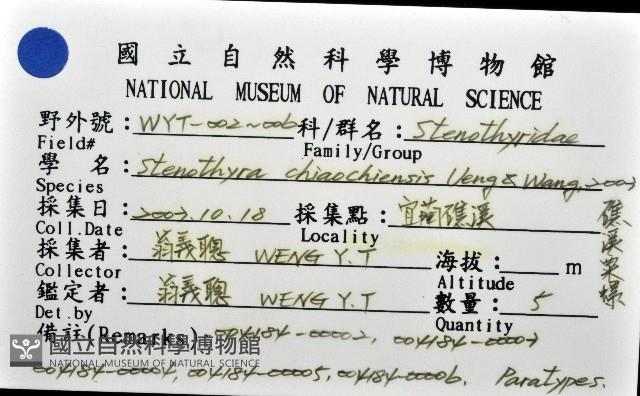 國立自然科學博物館
NATIONAL MUSEUM OF NATURAL SCIENCE
野外號：WYT-002~006 科/群名：Stenothyridae
Field# Family/Group
學 名：Stenothyra chiaochiensis Ueng & Wang, 2003
Species
採集日：2003.10.18 採集點：宜蘭礁溪
Coll.Date Locality
礁溪粟螺
採集者：翁義聰 WENG Y.T 海拔：m
Collector Altitude
鑑定者：翁義聰 WENG Y.T 數量：5
Det.by Quantity
備註(Remarks) 004184-00002, 004184-00003
國立自然科學博物館
NATIONAL MUSEUM OF NATURAL SCIENCE
004184-00004, 004184-00005, 004184-00006. Paratypes.